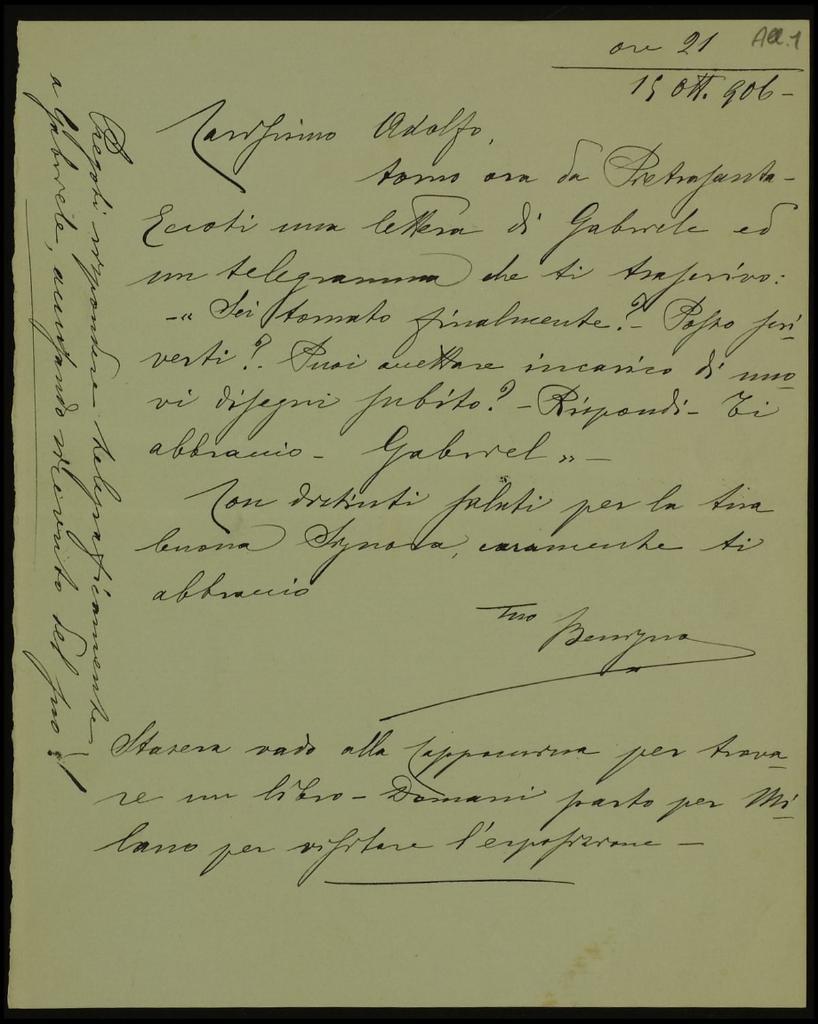 ore 21
All. 1
15 Ott. 906 -
Carissimo Adolfo,
torno ora da Pietrasanta -
Eccoti una lettera di Gabriele ed
un telegramma che ti trascrivo:
- " Sei tornato finalmente? - Posso scri-
verti? - Puoi accettare incarico di nuo-
vi disegni subito? - Rispondi - Ti
abbraccio - Gabriel " -
Con distinti saluti per la tua
buona Signora, caramente ti
abbraccio
Tuo Benigno
Stasera vado alla Capponcina per trova-
re un libro - Domani parto per Mi-
lano per visitare l'esposizione -
Pregoti rispondere telegraficamente
a Gabriele, accusando ricevuta del suo!